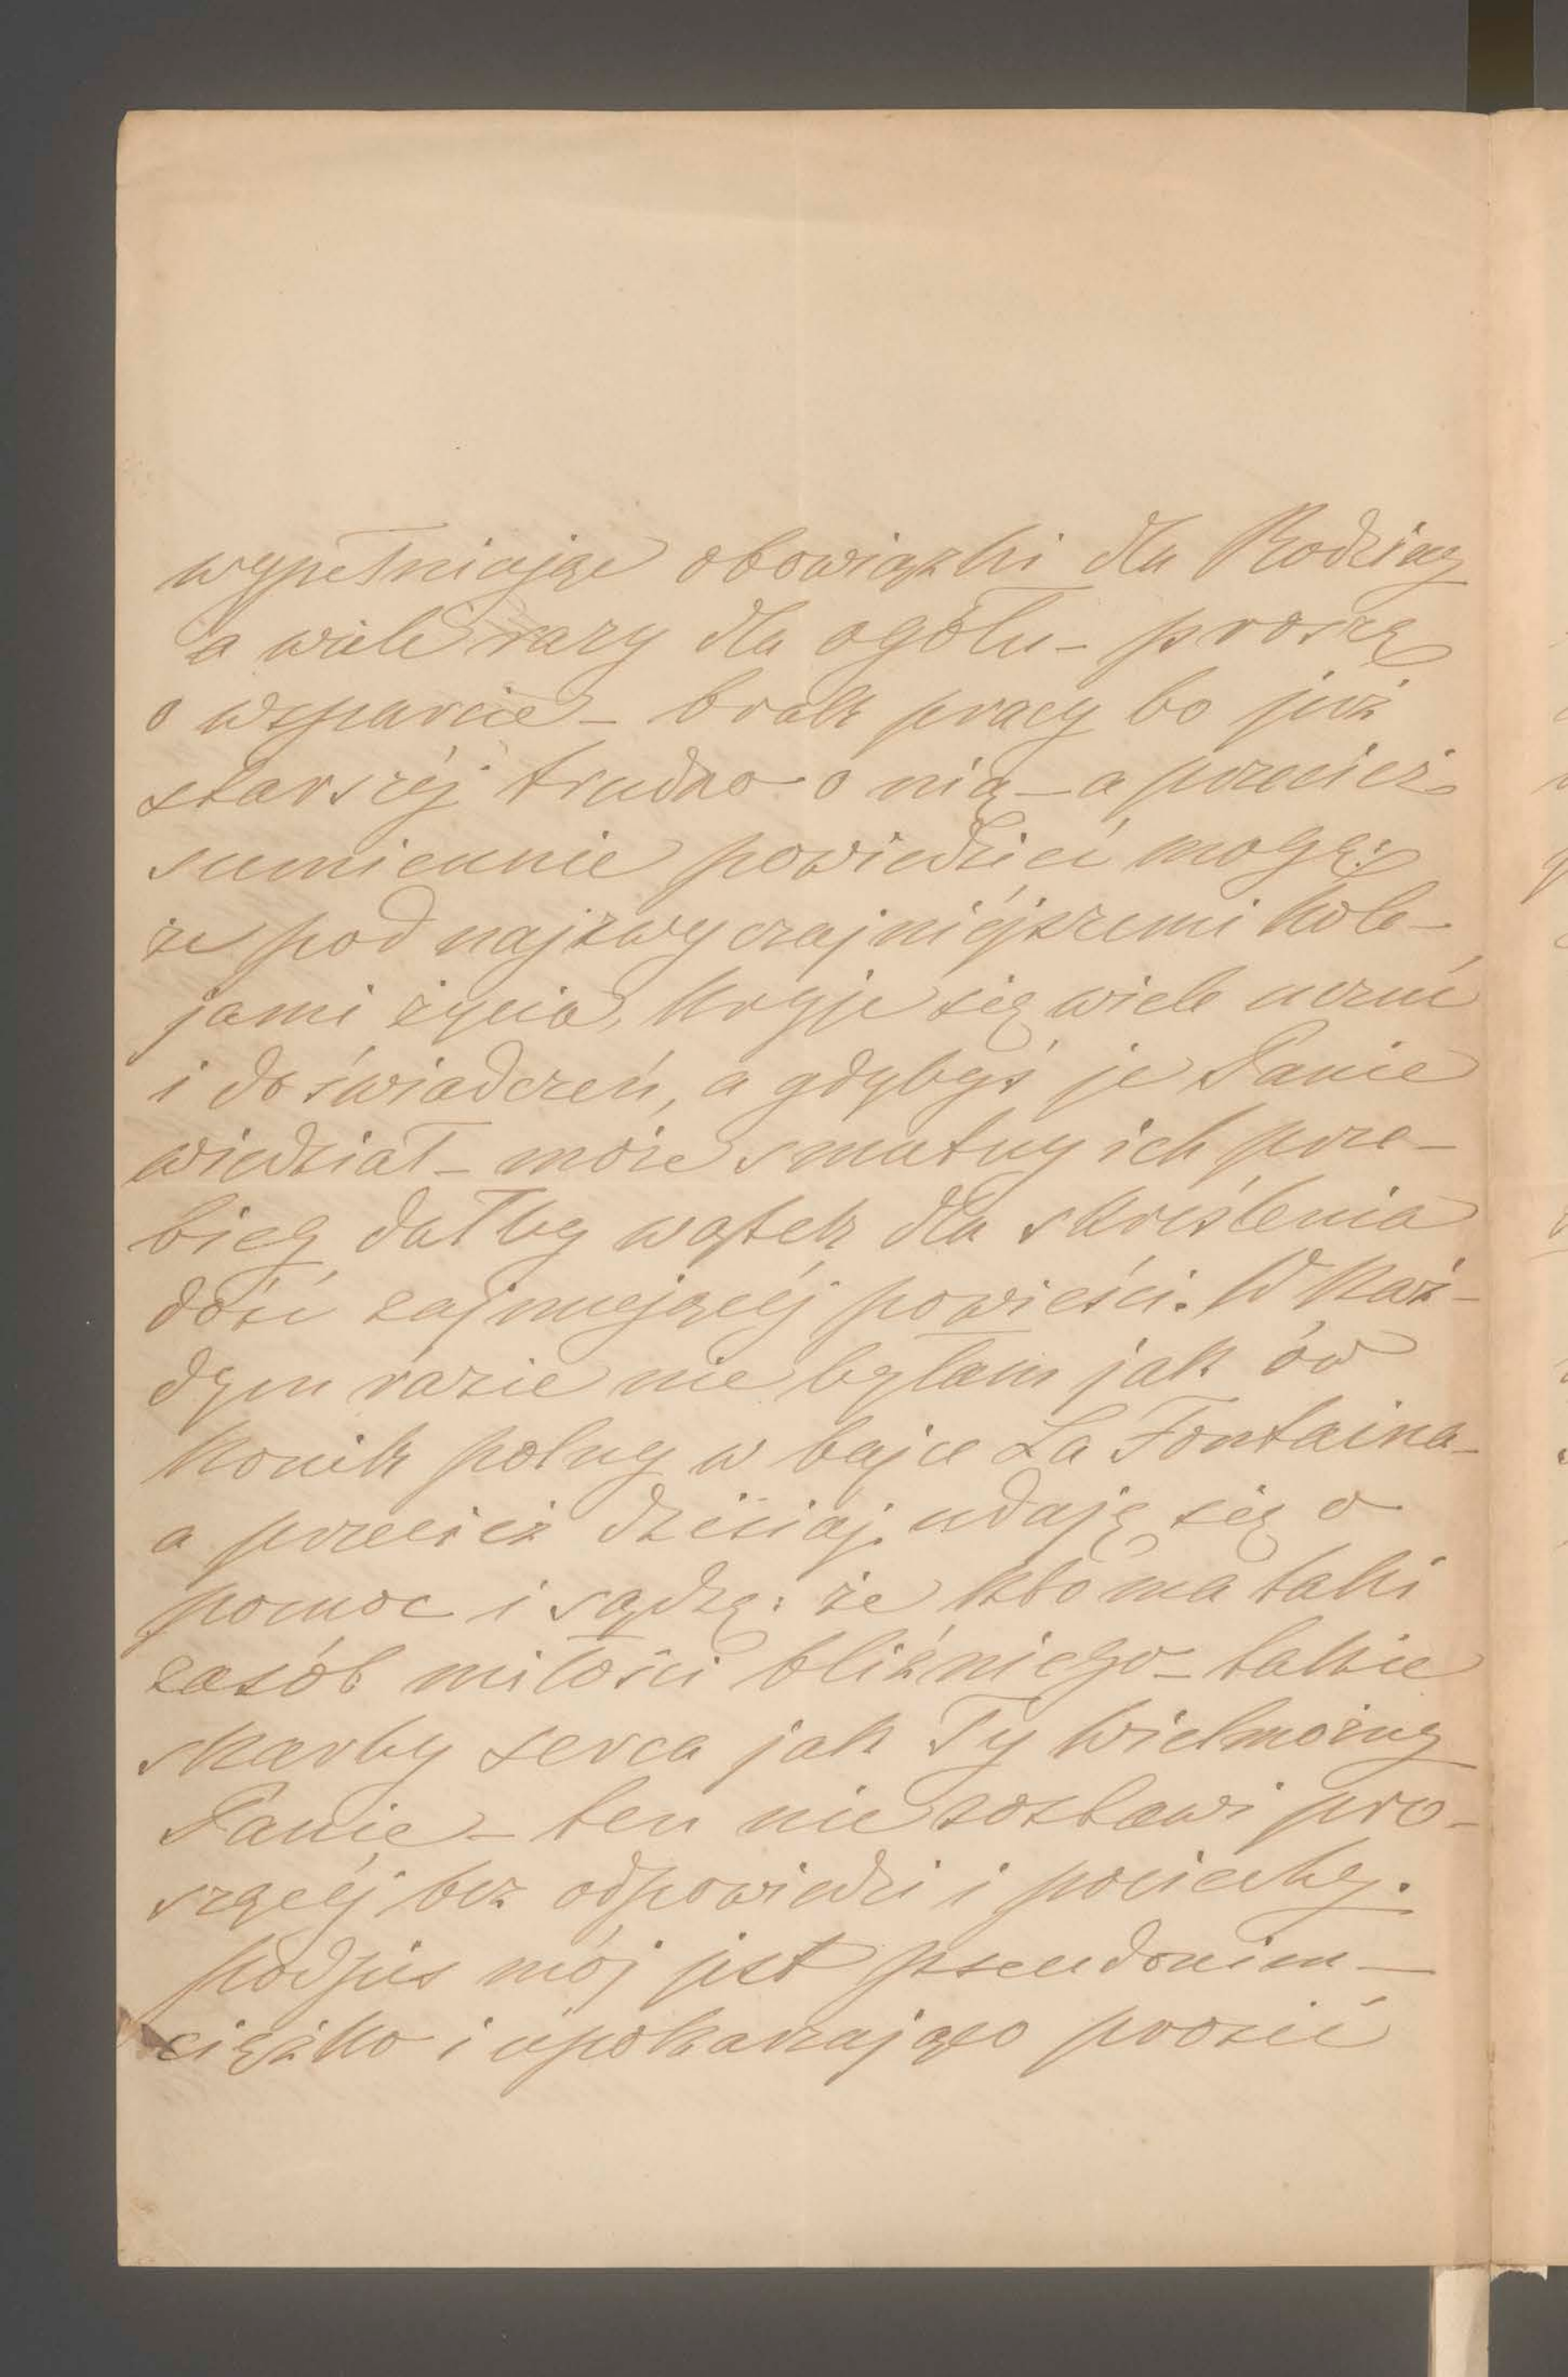 wypełniając obowiązki dla Rodziny
a wiele razy dla ogółu – proszę
o wsparcie – brak pracy bo już
starszéj trudno o nią – a przecież
sumiennie powiedzieć mogę:
że pod najzwyczajniéjszemi kole–
jami życia, kryje się wiele uczuć
i doświadczeń, a gdybyś je Panie
wiedział – może smutny ich prze–
bieg dałby wątek dla skréślenia
dość zajmującéj powieści. W każ–
dym razie nie byłam jak ów
konik polny w bajce La Fontaina –
a przecież dzisiaj udaję się o
pomoc i sądzę: że kto ma taki
zasób miłości bliźniego – takie
skarby serca jak Ty Wielmożny
Panie – ten nie zostawi pro–
szącéj bez odpowiedzi i pociechy.
Podpis mój jest pseudonim –
ciężko i upokarzająco prosić